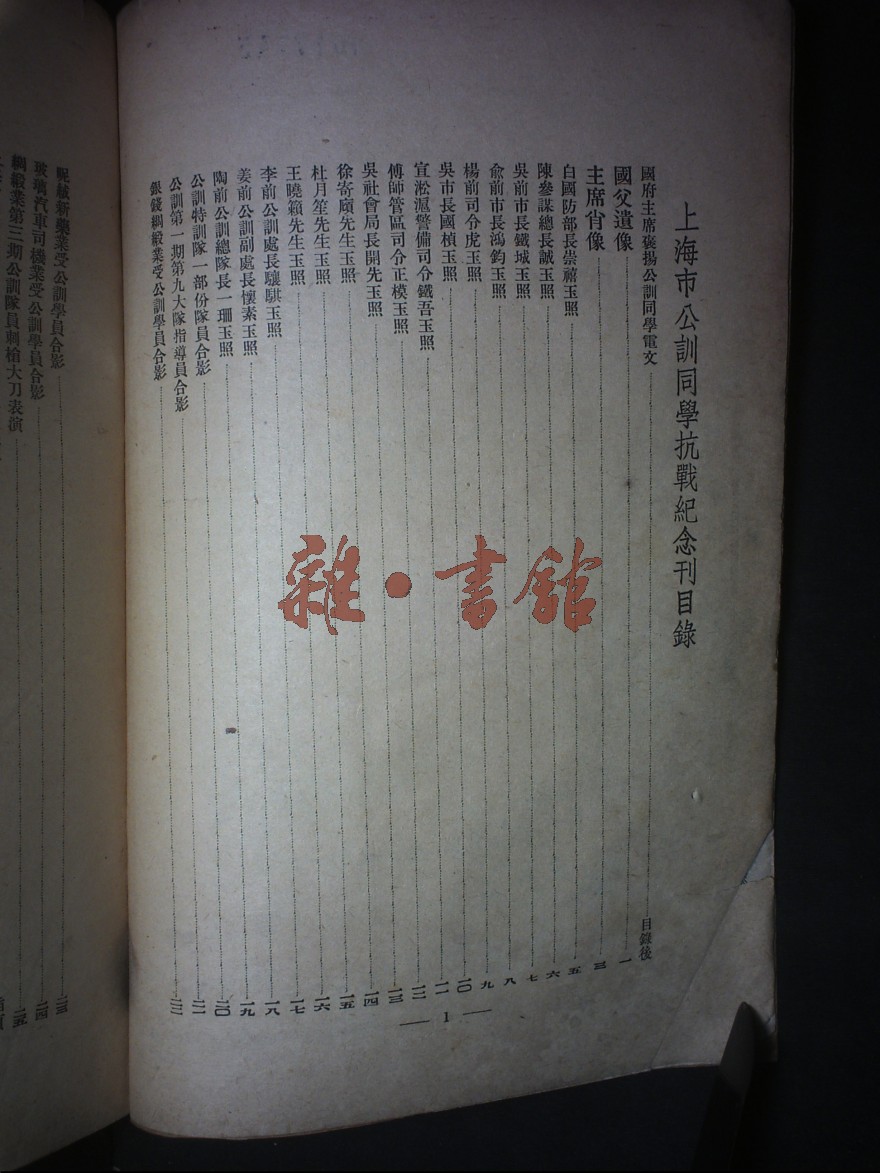 上海市公訓同學抗戰紀念刊目錄
國府主席褒揚公訓同學電文 目錄後
國父遺像 一
主席肖像 三
白國防部長崇禧玉照 五
陳參謀總長誠玉照 六
吳前市長鐵城玉照 七
兪前市長鴻鈞玉照 八
楊前司令虎玉照 九
吳市長國楨玉照 一〇
宣淞滬警備司令鐵吾玉照 一一
傅師管區司令正模玉照 一三
吳社會局長開先玉照 一四
徐寄廎先生玉照 一五
杜月笙先生玉照 一六
王曉籟先生玉照 一七
李前公訓處長驤騏玉照 一八
姜前公訓副處長懷素玉照 一九
陶前公訓總隊長一珊玉照 二〇
公訓特訓隊一部份隊員合影 二一
公訓第一期第九大隊指導員合影
銀錢綢緞業受公訓學員合影 二二
呢絨新藥業受公訓學員合影 二三
玻璃汽車司機業受公訓學員合影 二四
綢緞業第三期公訓隊員刺槍大刀表演 二五
— 1 —
雜·書館